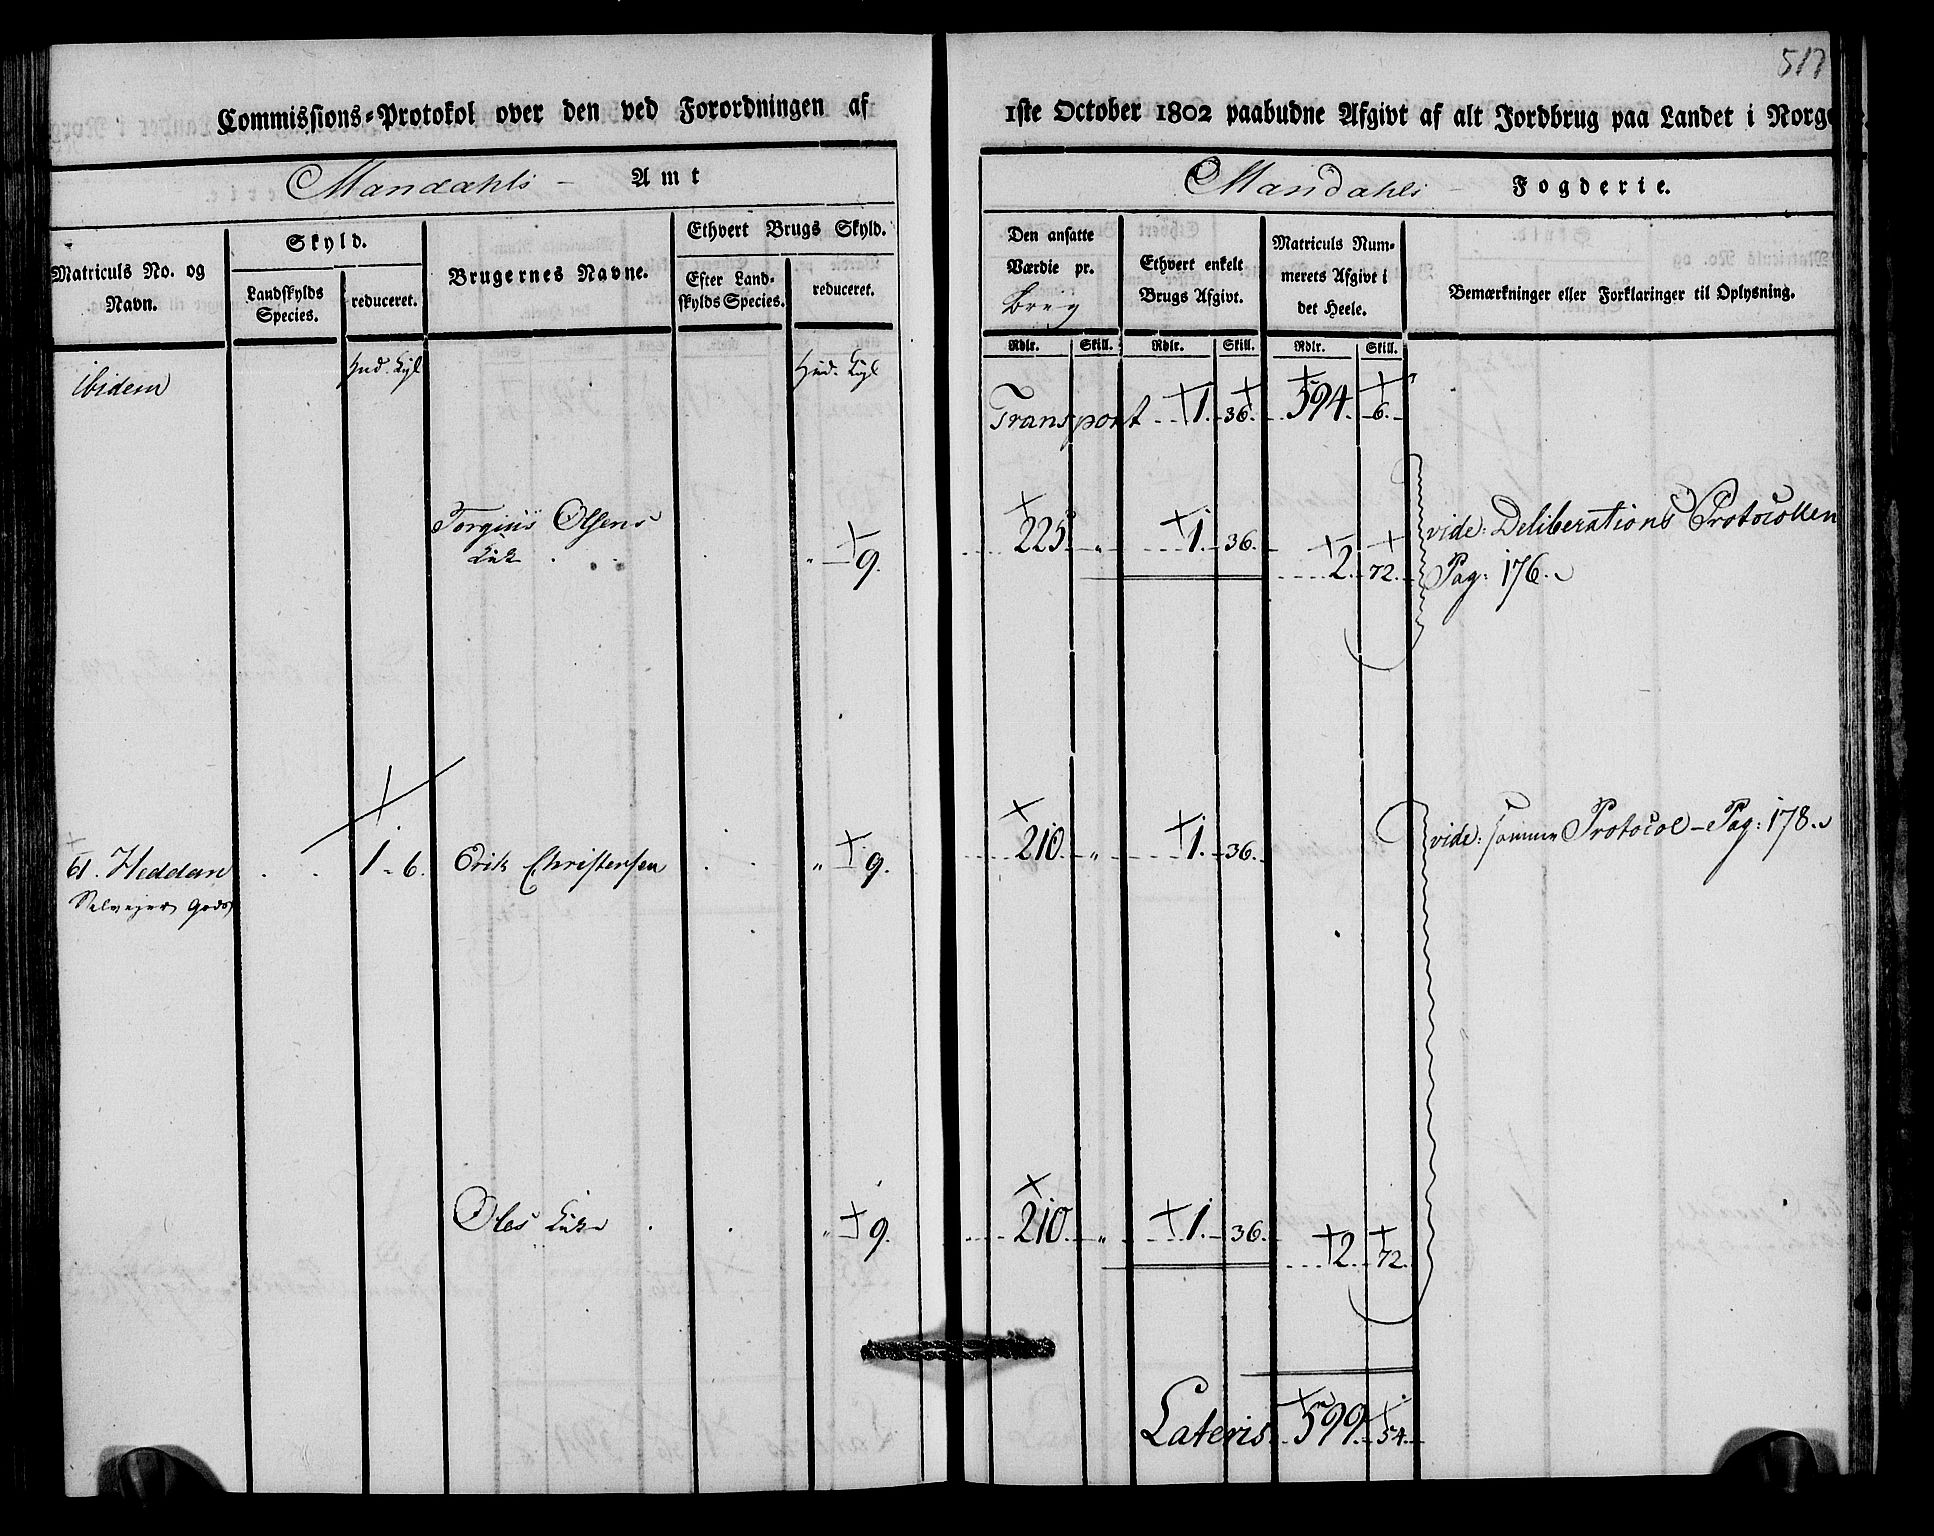 517
Commissions-Protokol over den ved Forordningen af 1ste October 1802 paabudne Afgivt af alt Jordbrug paa Landet i Norge
Mandahls Amt
Mandahls Fogderie.
Matriculs No. og Navn.
Skyld.
Landskylds Species.
reduceret.
Brugernes Navne.
Ethvert Brugs Skyld.
Efter Landskylds Species.
reduceret.
Den ansatte Værdie pr. Brug
Ethvert enkelt Brugs Afgivt.
Matriculs Nummerets Afgivt i det Heele.
Bemærkninger eller Forklaringer til Oplysning.
Rdlr. Skill. Rdlr. Skill. Rdlr. Skill.
ibidem
Hud. Kgl
Hud. Kgl
Transport 1. 36. 594. 6.
Torgius Olsens
" 9. 225 " 1. 36. 2. 72.
vide: Deliberations Protocollen
Pag: 176.
61. Heddan 1 - 6. Erik Christensen " 9. 210. " 1. 36.
vide: samme Protocol - Pag: 178.
Selveyer Gods
Oles " 9. 210. " 1. 36. 2. 72.
Lateris 599. 54.